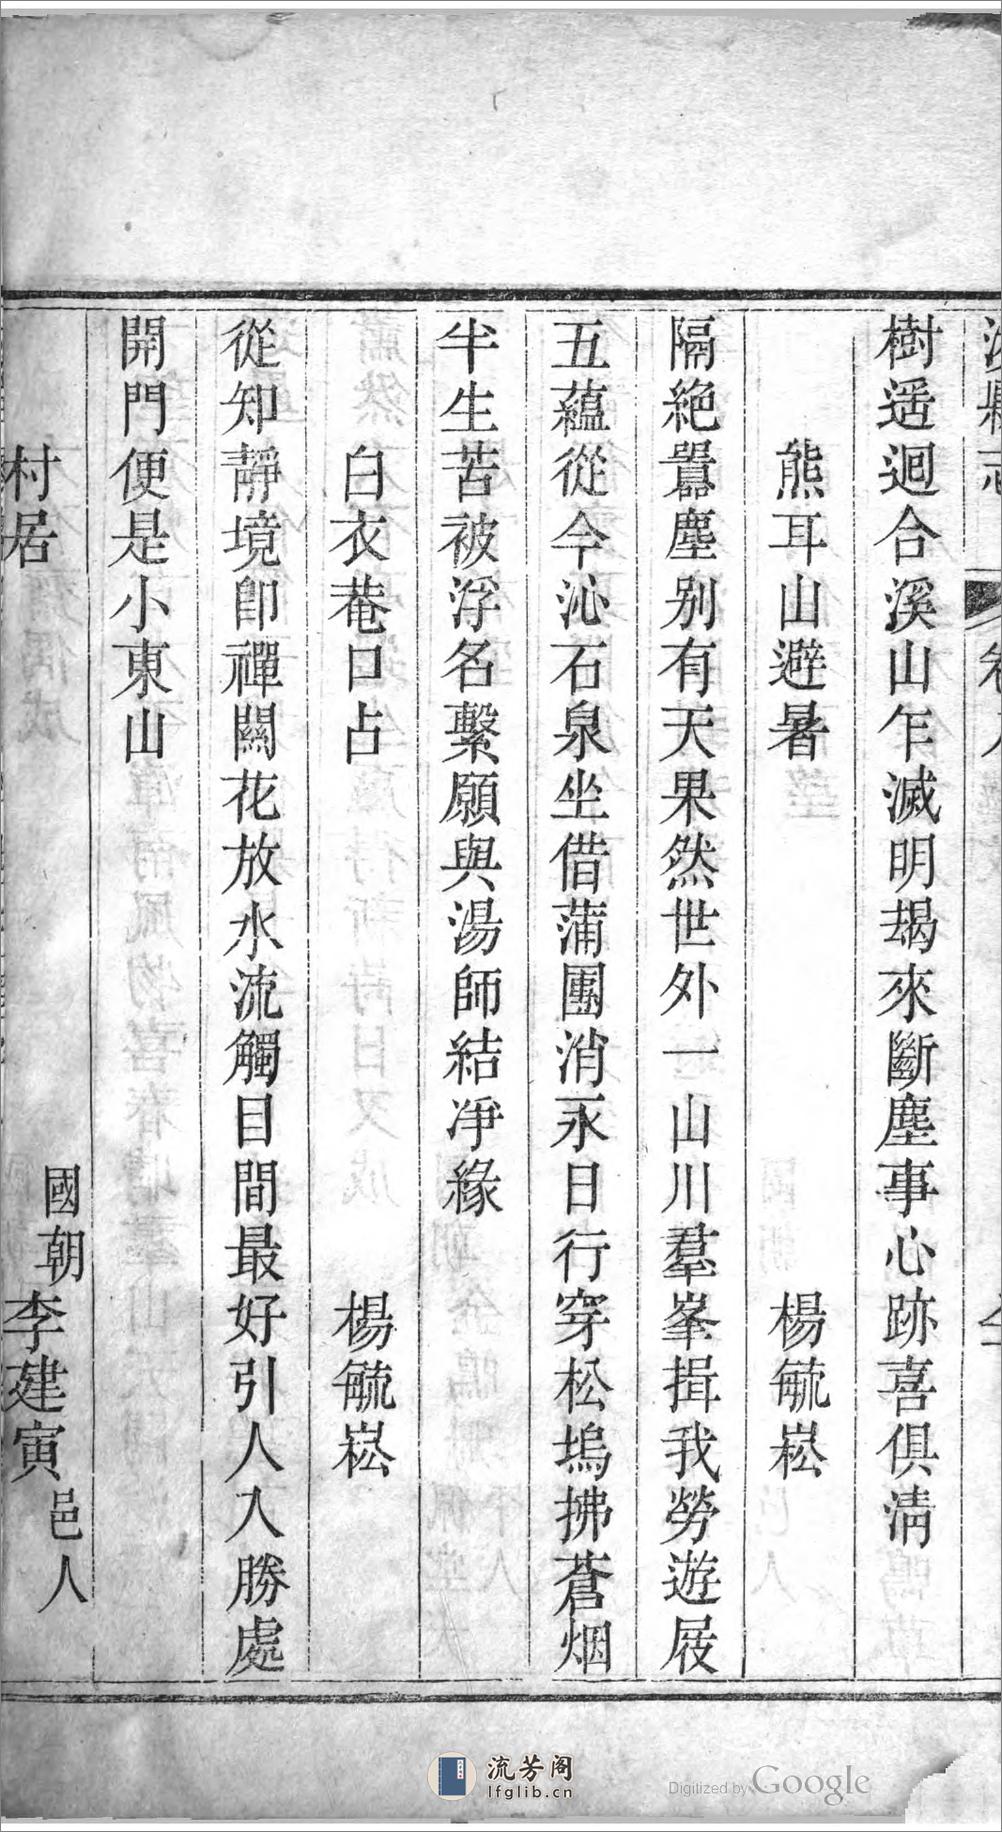 樹逶迴合溪山乍滅明朅來斷塵事心跡喜俱清
熊耳山避暑 楊毓崧
隔絶嚣塵别有天果然世外一山川羣峯揖我勞遊屐
五蘊從今沁石泉坐借蒲團消永日行穿松塢拂蒼烟
半生苦被浮名繫願與湯師結凈緣
白衣菴口占 楊毓崧
從知靜境卽禪關花放水流觸目間最好引人入勝處
開門便是小東山
村居 國朝李建寅邑人
流芳阁
lfglib.cn
Digitized by Google